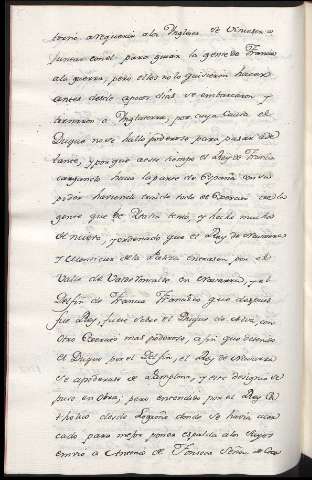 tornó a requerir a los Ingleses se viniesen a
juntar con el para guiar la gente de Francia
a la guerra, pero ellos no lo quisieron hacer
antes desde a pocos dias se embarcaron y
tornaron a Inglaterra, por cuya causa el
Duque no se halló poderoso para pasar ade
lante, y porque a este tiempo el Rey de Francia
cargando hacia la parte de España con su
poder haviendo tenido todo el Exercito con la
gente que de Italia tenia, y hecho mucha
de nuevo, y ordenado que el Rey de Navarra
y Monsieur de la Paliza entrasen por el
Valle de Valderroncales en Navarra, y el
Delfin de Francia Francisco que despues
fue Rey, fuese sobre el Duque de Alva, con
otro Exercito mas poderoso, a fin que deteniendo
el Duque por el Delfin, el Rey de Navarra
se apoderase de Pamplona, y este designio se
puso en obra; pero entendido por el Rey Ca
tholico desde Logroño donde se havia acer
cado para mejor poner espalda a los suyos
envió a Antonio de Fonseca Señor de Coca